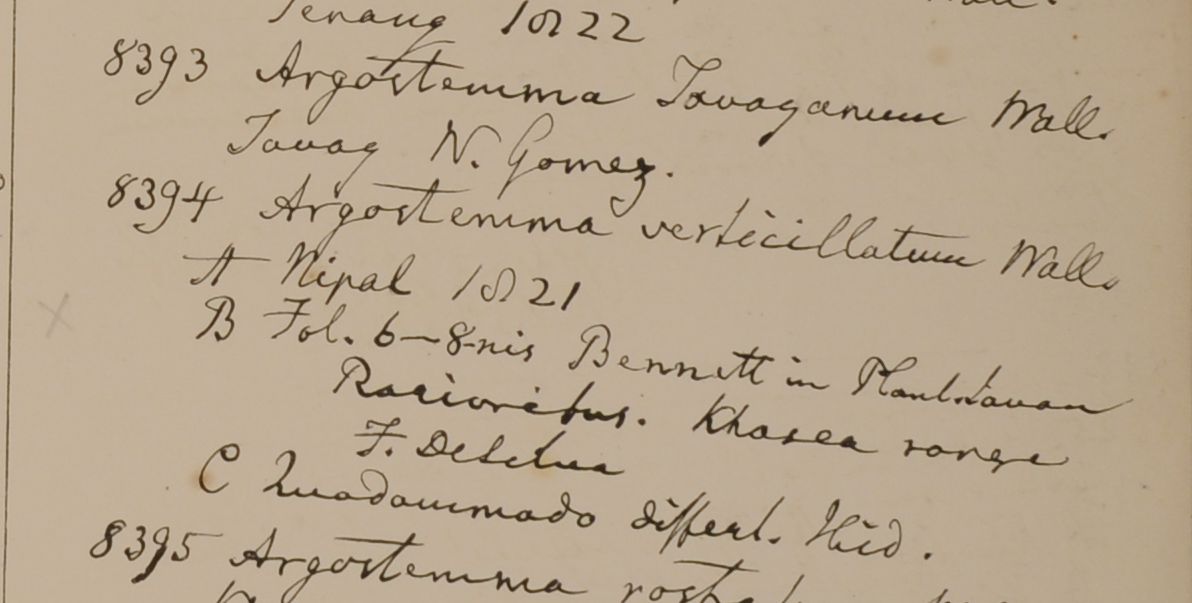 Penang 1822
8393 Argostemma Tavoyanum Wall.
Tavoy N. Gomez.
8394 Argostemma verticillatum Wall.
A Nipal 1821
B Fol. 6-8-nis Bennett in Plant. Javan
Rarioribus. Khasea range
F. De Silva
C Quodammodo differt. Ibid.
8395 Argostemma